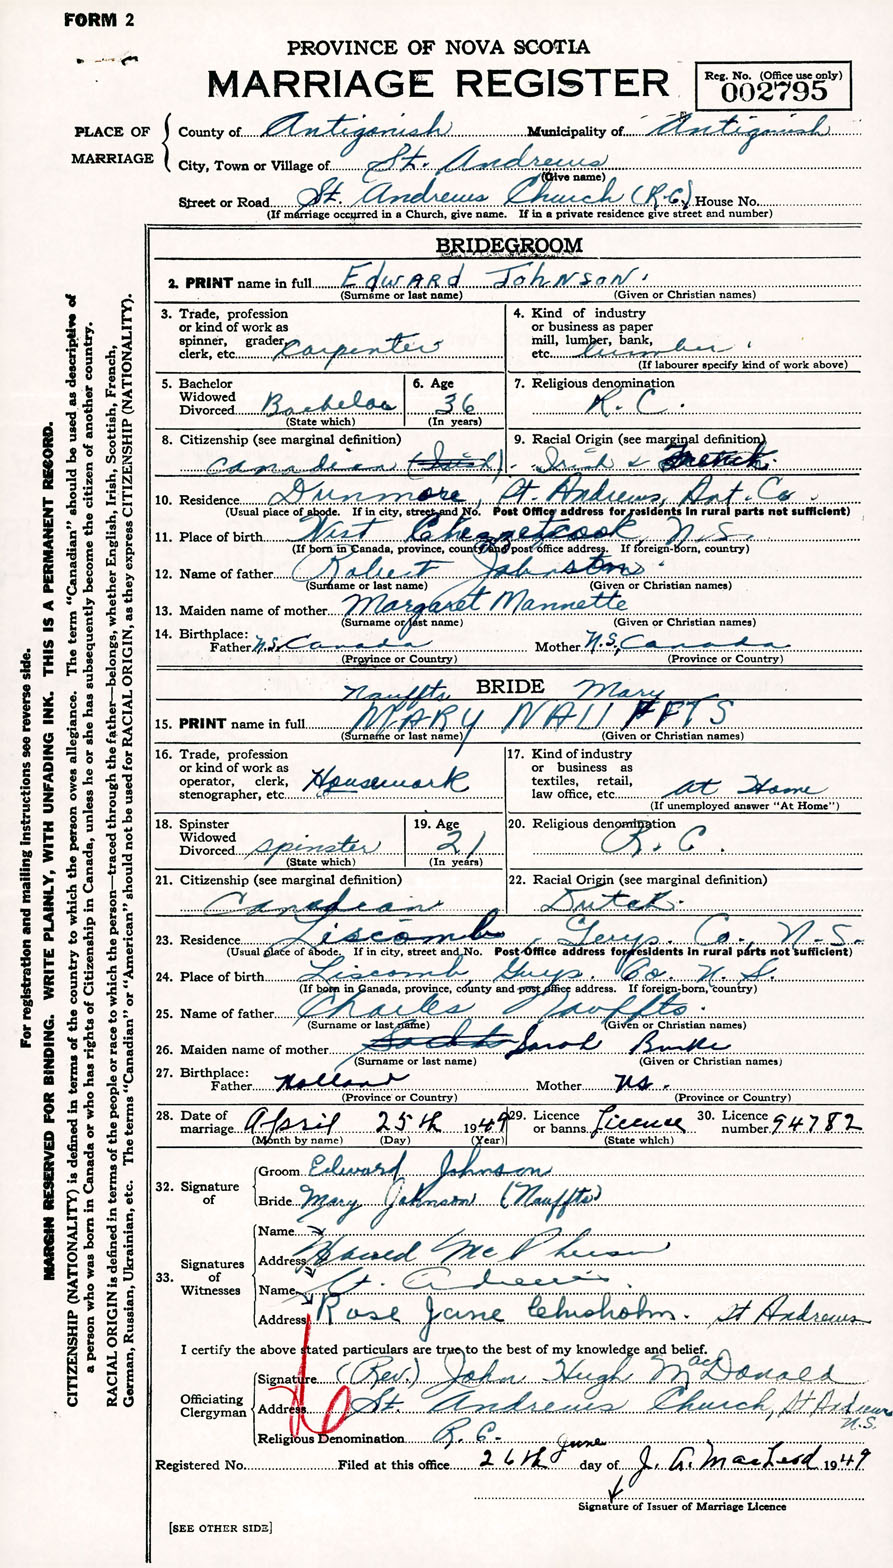 FORM 2
PROVINCE OF NOVA SCOTIA
MARRIAGE REGISTER
Reg. No. (Office use only)
002795
PLACE OF MARRIAGE
County of Antigonish Municipality of Antigonish
City, Town or Village of St. Andrews
(Give name)
Street or Road St. Andrews Church (R.C.) House No.
(If marriage occurred in a Church, give name. If in a private residence give street and number)
BRIDEGROOM
2. PRINT name in full EDWARD JOHNSON
(Surname or last name) (Given or Christian names)
3. Trade, profession or kind of work as spinner, grader, clerk, etc. Carpenter
4. Kind of industry or business as paper mill, lumber, bank, etc. lumber
(If labourer specify kind of work above)
5. Bachelor Widowed Divorced Bachelor
(State which)
6. Age 36
(In years)
7. Religious denomination R.C.
8. Citizenship (see marginal definition) Canadian (Irish)
9. Racial Origin (see marginal definition) Irish & French
10. Residence Dunmore, St. Andrews, Ant. Co.
(Usual place of abode. If in city, street and No. Post Office address for residents in rural parts not sufficient)
11. Place of birth West Chezzetcook, N.S.
(If born in Canada, province, county and post office address. If foreign-born, country)
12. Name of father Robert Johnston
(Surname or last name) (Given or Christian names)
13. Maiden name of mother Margaret Mannette
(Surname or last name) (Given or Christian names)
14. Birthplace: Father N.S. Canada Mother N.S. Canada
(Province or Country) (Province or Country)
Nauffts BRIDE Mary
15. PRINT name in full MARY NAUFFTS
(Surname or last name) (Given or Christian names)
16. Trade, profession or kind of work as operator, clerk, stenographer, etc. Housework
17. Kind of industry or business as textiles, retail, law office, etc. at Home
(If unemployed answer "At Home")
18. Spinster Widowed Divorced spinster
(State which)
19. Age 21
(In years)
20. Religious denomination R.C.
21. Citizenship (see marginal definition) Canadian
22. Racial Origin (see marginal definition) Dutch
23. Residence Liscomb, Guys. Co., N.S.
(Usual place of abode. If in city, street and No. Post Office address for residents in rural parts not sufficient)
24. Place of birth Liscomb, Guys. Co. N.S.
(If born in Canada, province, county and post office address. If foreign-born, country)
25. Name of father Charles Nauffts
(Surname or last name) (Given or Christian names)
26. Maiden name of mother Sarah Burke
(Surname or last name) (Given or Christian names)
27. Birthplace: Father Holland Mother N.S.
(Province or Country) (Province or Country)
28. Date of marriage April 25th 1949
(Month by name) (Day) (Year)
29. Licence or banns Licence
(State which)
30. Licence number 94782
32. Signature of
Groom Edward Johnson
Bride Mary Johnson (Nauffts)
33. Signatures of Witnesses
Name
Address McPherson
Name St. Andrews
Address Rose Jane Chisholm. St Andrews
I certify the above stated particulars are true to the best of my knowledge and belief.
Officiating Clergyman
Signature (Rev.) John Hugh MacDonald
Address St. Andrews Church, St Andrews N.S.
Religious Denomination R.C.
Registered No. Filed at this office 26th day of June J. A. MacLeod 1949
Signature of Issuer of Marriage Licence
[SEE OTHER SIDE]
For registration and mailing instructions see reverse side.
MARGIN RESERVED FOR BINDING. WRITE PLAINLY, WITH UNFADING INK. THIS IS A PERMANENT RECORD.
CITIZENSHIP (NATIONALITY) is defined in terms of the country to which the person owes allegiance. The term "Canadian" should be used as descriptive of
a person who was born in Canada or who has rights of Citizenship in Canada, unless he or she has subsequently become the citizen of another country.
RACIAL ORIGIN is defined in terms of the people or race to which the person—traced through the father—belongs, whether English, Irish, Scottish, French,
German, Russian, Ukrainian, etc. The terms "Canadian" or "American" should not be used for RACIAL ORIGIN, as they express CITIZENSHIP (NATIONALITY).